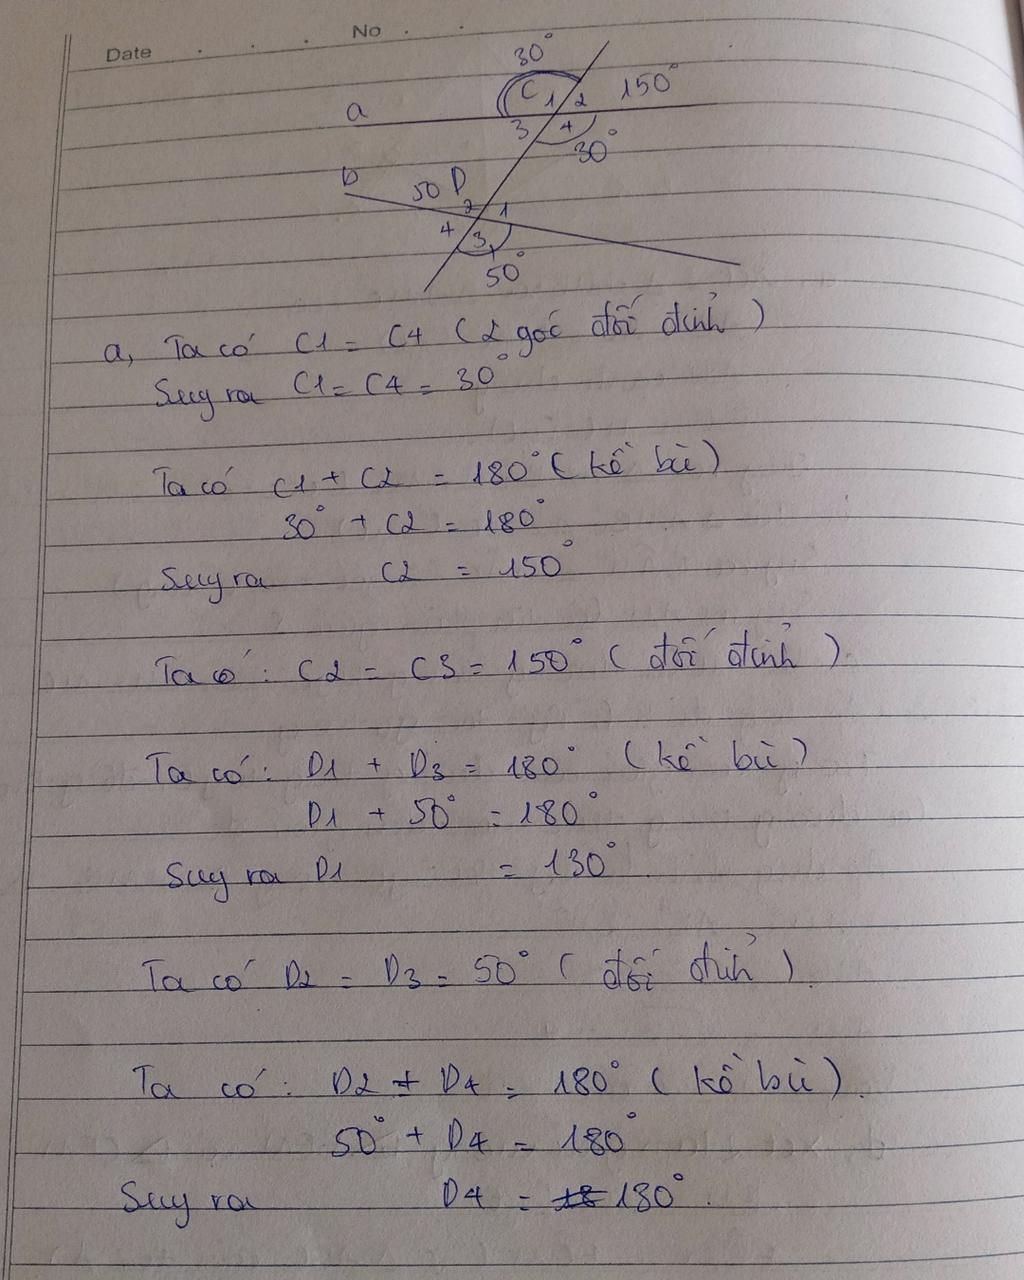 Date
No
30°
C 1 2 150°
a
3 4
30°
b
50 D
2 1
4 3
50°
a, Ta có C1 = C4 (2 góc đối đỉnh)
Suy ra C1 = C4 = 30°
Ta có C1 + C2 = 180° (kề bù)
30° + C2 = 180°
Suy ra C2 = 150°
Ta có: C2 = C3 = 150° (đối đỉnh).
Ta có: D1 + D3 = 180° (kề bù)
D1 + 50° = 180°
Suy ra D1 = 130°.
Ta có D2 = D3 = 50° (đối đỉnh).
Ta có: D2 + D4 = 180° (kề bù).
50° + D4 = 180°
Suy ra D4 = 130°.